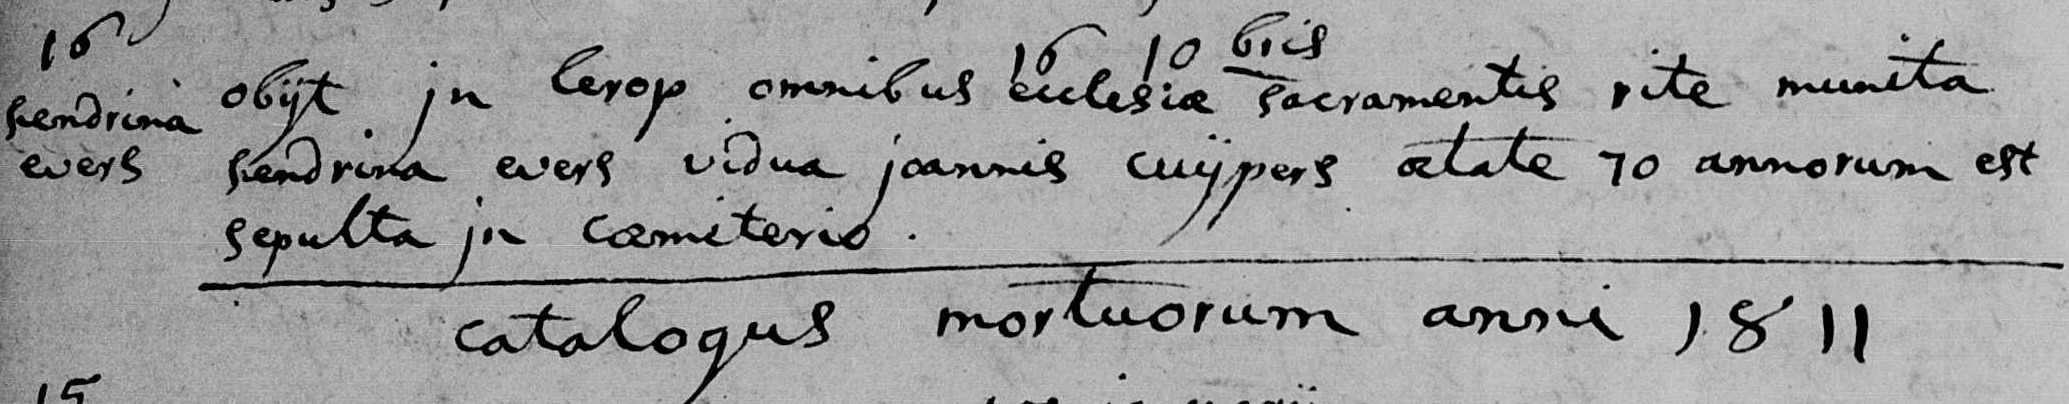 16
hendrina
evers
16 10 bris
obijt jn lerop omnibus ecclesiæ sacramentis rite munita
hendrina evers vidua joannis cuijpers ætate 70 annorum est
sepulta jn cœmiterio.
catalogus mortuorum anni 1811
15